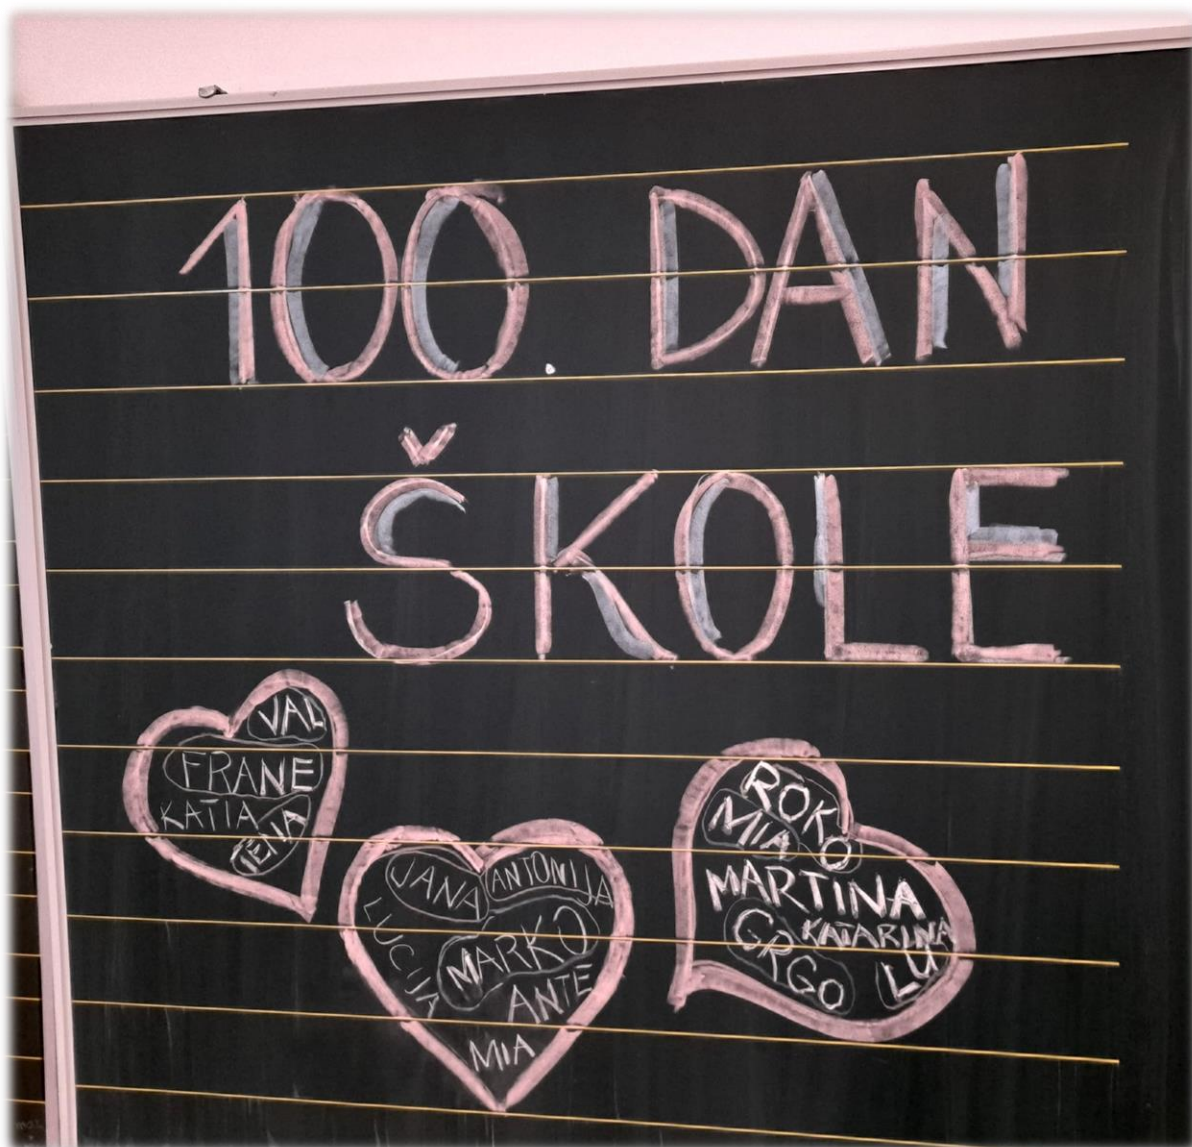 100. DAN
ŠKOLE
VAL
FRANE
KATIA
JANA
ANTONIJA
LUCIJA
MARKO
ANTE
MIA
ROKO
MIA
MARTINA
KATARINA
GRGO
LU